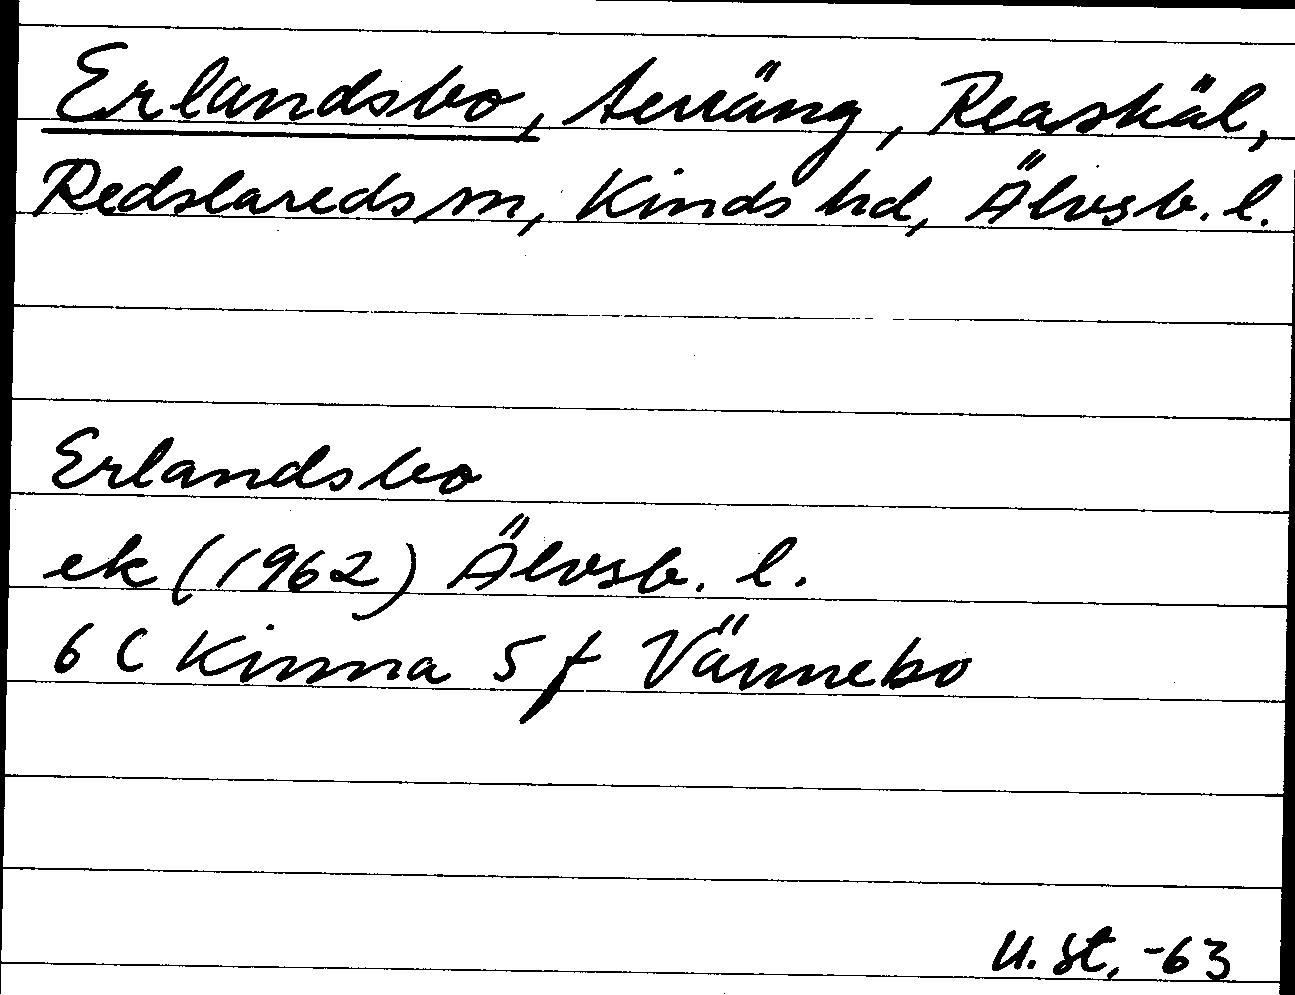 Erlandsbo, terräng, Reaskäl,
Redslareds sn, Kinds hd, Älvsb. l.
Erlandsbo
ek (1962) Älvsb. l.
6 C Kinna 5 f Vännebo
U. St, -63